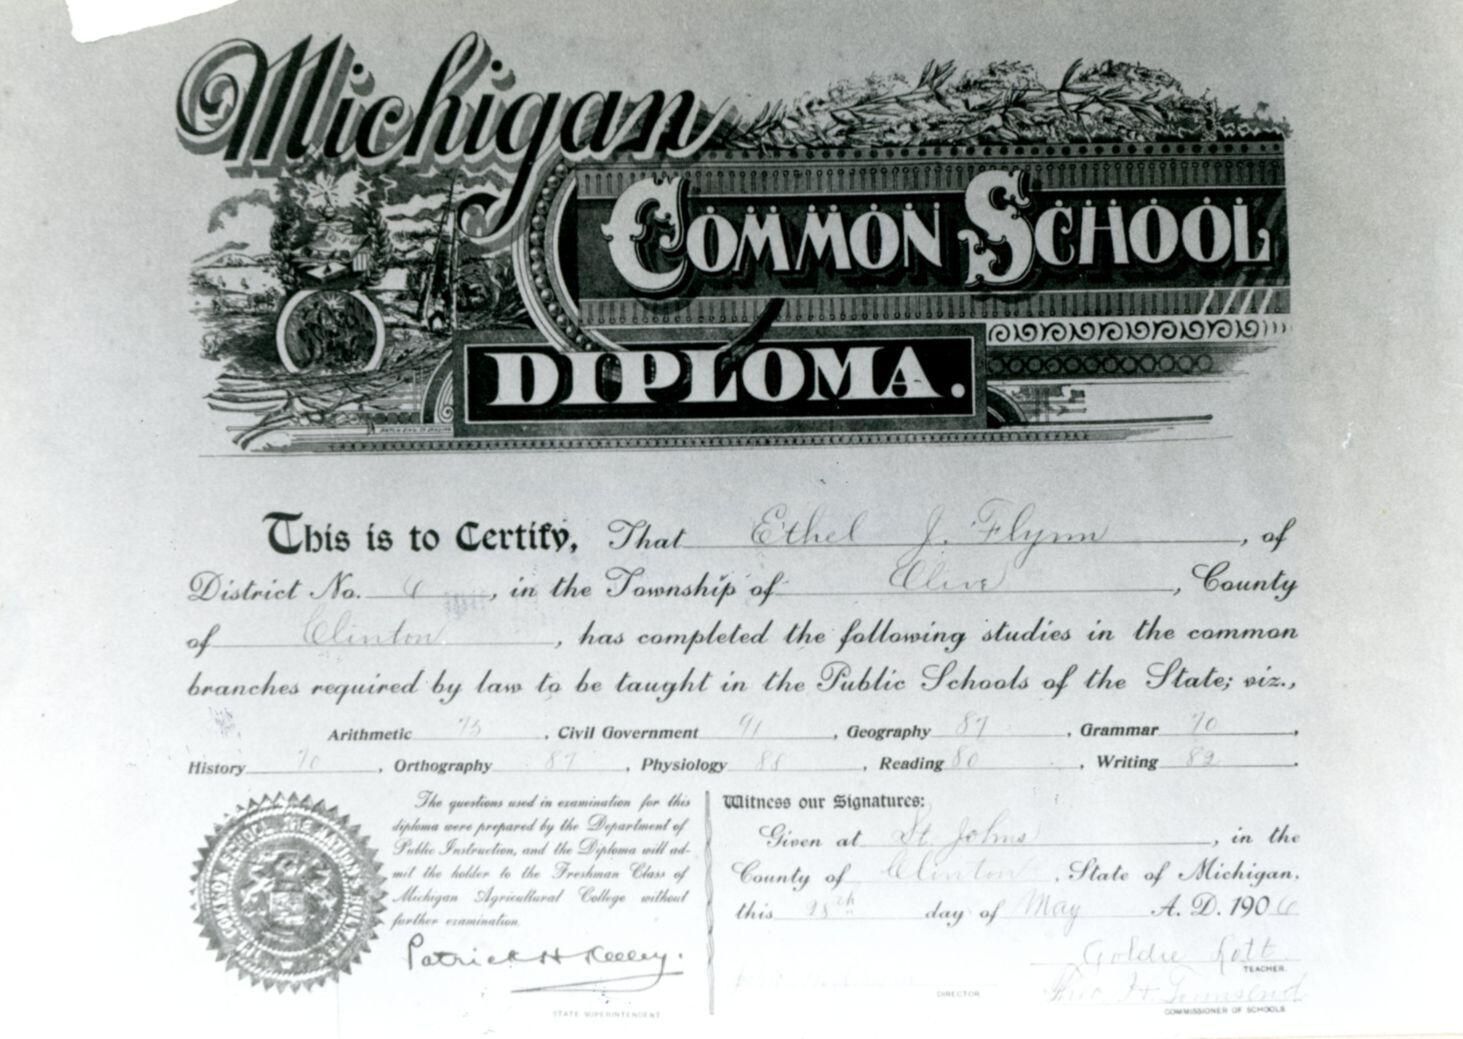 Michigan
COMMON SCHOOL
DIPLOMA.
This is to Certify, That Ethel J. Flynn, of
District No. 6, in the Township of Olive, County
of Clinton, has completed the following studies in the common
branches required by law to be taught in the Public Schools of the State; viz.,
Arithmetic 75, Civil Government 91, Geography 87, Grammar 70,
History 70, Orthography 87, Physiology 88, Reading 80, Writing 82.
The questions used in examination for this
diploma were prepared by the Department of
Public Instruction, and the Diploma will ad-
mit the holder to the Freshman Class of
Michigan Agricultural College without
further examination.
Patrick H Kelley.
STATE SUPERINTENDENT
Witness our Signatures:
Given at St. Johns, in the
County of Clinton, State of Michigan,
this day of May A. D. 1906
Goldie Lott
TEACHER.
DIRECTOR
Theo. H. Townsend
COMMISSIONER OF SCHOOLS
COMMON SCHOOL